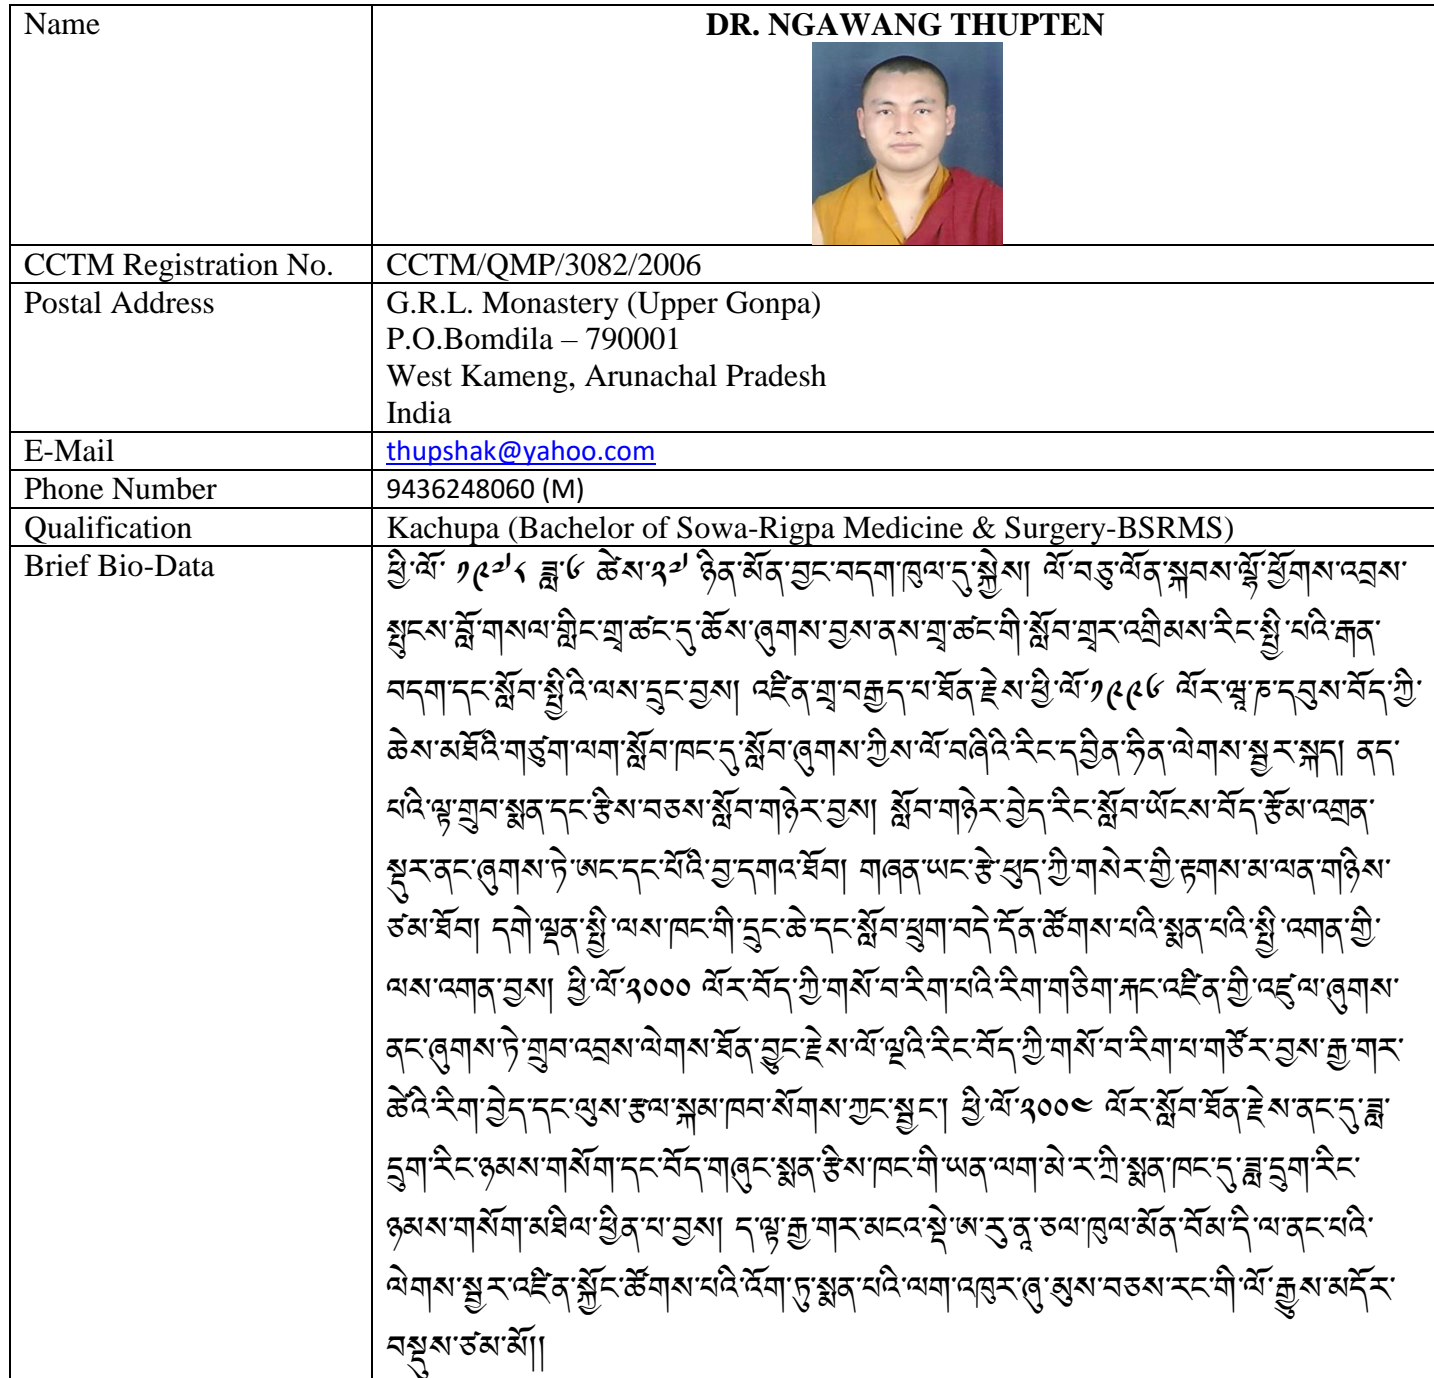 Name
DR. NGAWANG THUPTEN
CCTM Registration No.
CCTM/QMP/3082/2006
Postal Address
G.R.L. Monastery (Upper Gonpa)
P.O.Bomdila – 790001
West Kameng, Arunachal Pradesh
India
E-Mail
thupshak@yahoo.com
Phone Number
9436248060 (M)
Qualification
Kachupa (Bachelor of Sowa-Rigpa Medicine & Surgery-BSRMS)
Brief Bio-Data
ཕྱི་ལོ་ ༡༩༧༨ ཟླ་༦ ཚེས་༢༧ ཉིན་མོན་བྱང་བདག་ཁུལ་དུ་སྐྱེས། ལོ་བཅུ་ལོན་སྐབས་ལྷོ་ཕྱོགས་འབྲས་
སྤུངས་བློ་གསལ་གླིང་གྲྭ་ཚང་དུ་ཆོས་ཞུགས་བྱས་ནས་གྲྭ་ཚང་གི་སློབ་གྲྭར་འགྲིམས་རིང་སྤྱི་པའི་རྒན་
བདག་དང་སློབ་སྤྱིའི་ལས་དྲུང་བྱས། འཛིན་གྲྭ་བརྒྱད་པ་ཐོན་རྗེས་ཕྱི་ལོ་༡༩༩༦ ལོར་ཝཱ་ཎ་དབུས་བོད་ཀྱི་
ཆེས་མཐོའི་གཙུག་ལག་སློབ་ཁང་དུ་སློབ་ཞུགས་ཀྱིས་ལོ་བཞིའི་རིང་དབྱིན་ཧིན་ལེགས་སྦྱར་སྐད། ནང་
པའི་ལྟ་གྲུབ་སྨན་དང་རྩིས་བཅས་སློབ་གཉེར་བྱས། སློབ་གཉེར་བྱེད་རིང་སློབ་ཡོངས་བོད་རྩོམ་འགྲན་
སྡུར་ནང་ཞུགས་ཏེ་ཨང་དང་པོའི་བྱ་དགའ་ཐོབ། གཞན་ཡང་རྩེ་ཕུད་ཀྱི་གསེར་གྱི་རྟགས་མ་ལན་གཉིས་
ཙམ་ཐོབ། དགེ་ལྡན་སྤྱི་ལས་ཁང་གི་དྲུང་ཆེ་དང་སློབ་ཕྲུག་བདེ་དོན་ཚོགས་པའི་སྨན་པའི་སྤྱི་འགན་གྱི་
ལས་འགན་བྱས། ཕྱི་ལོ་༢༠༠༠ ལོར་བོད་ཀྱི་གསོ་བ་རིག་པའི་རིག་གཅིག་རྐང་འཛིན་གྱི་འཛུལ་ཞུགས་
ནང་ཞུགས་ཏེ་གྲུབ་འབྲས་ལེགས་ཐོན་བྱུང་རྗེས་ལོ་ལྔའི་རིང་བོད་ཀྱི་གསོ་བ་རིག་པ་གཙོར་བྱས་རྒྱ་གར་
ཚེའི་རིག་བྱེད་དང་ལུས་རྩལ་སྐམ་ཁབ་སོགས་ཀྱང་སྦྱང་། ཕྱི་ལོ་༢༠༠༤ ལོར་སློབ་ཐོན་རྗེས་ནང་དུ་ཟླ་
དྲུག་རིང་ཉམས་གསོག་དང་བོད་གཞུང་སྨན་རྩིས་ཁང་གི་ཡན་ལག་མེ་ར་ཀྲི་སྨན་ཁང་དུ་ཟླ་དྲུག་རིང་
ཉམས་གསོག་མཐིལ་ཕྱིན་པ་བྱས། ད་ལྟ་རྒྱ་གར་མངའ་སྡེ་ཨ་རུ་ནཱ་ཅལ་ཁུལ་མོན་བོམ་དི་ལ་ནང་པའི་
ལེགས་སྦྱར་འཛིན་སྐྱོང་ཚོགས་པའི་འོག་ཏུ་སྨན་པའི་ལག་འཁུར་ཞུ་མུས་བཅས་རང་གི་ལོ་རྒྱུས་མདོར་
བསྡུས་ཙམ་མོ།།